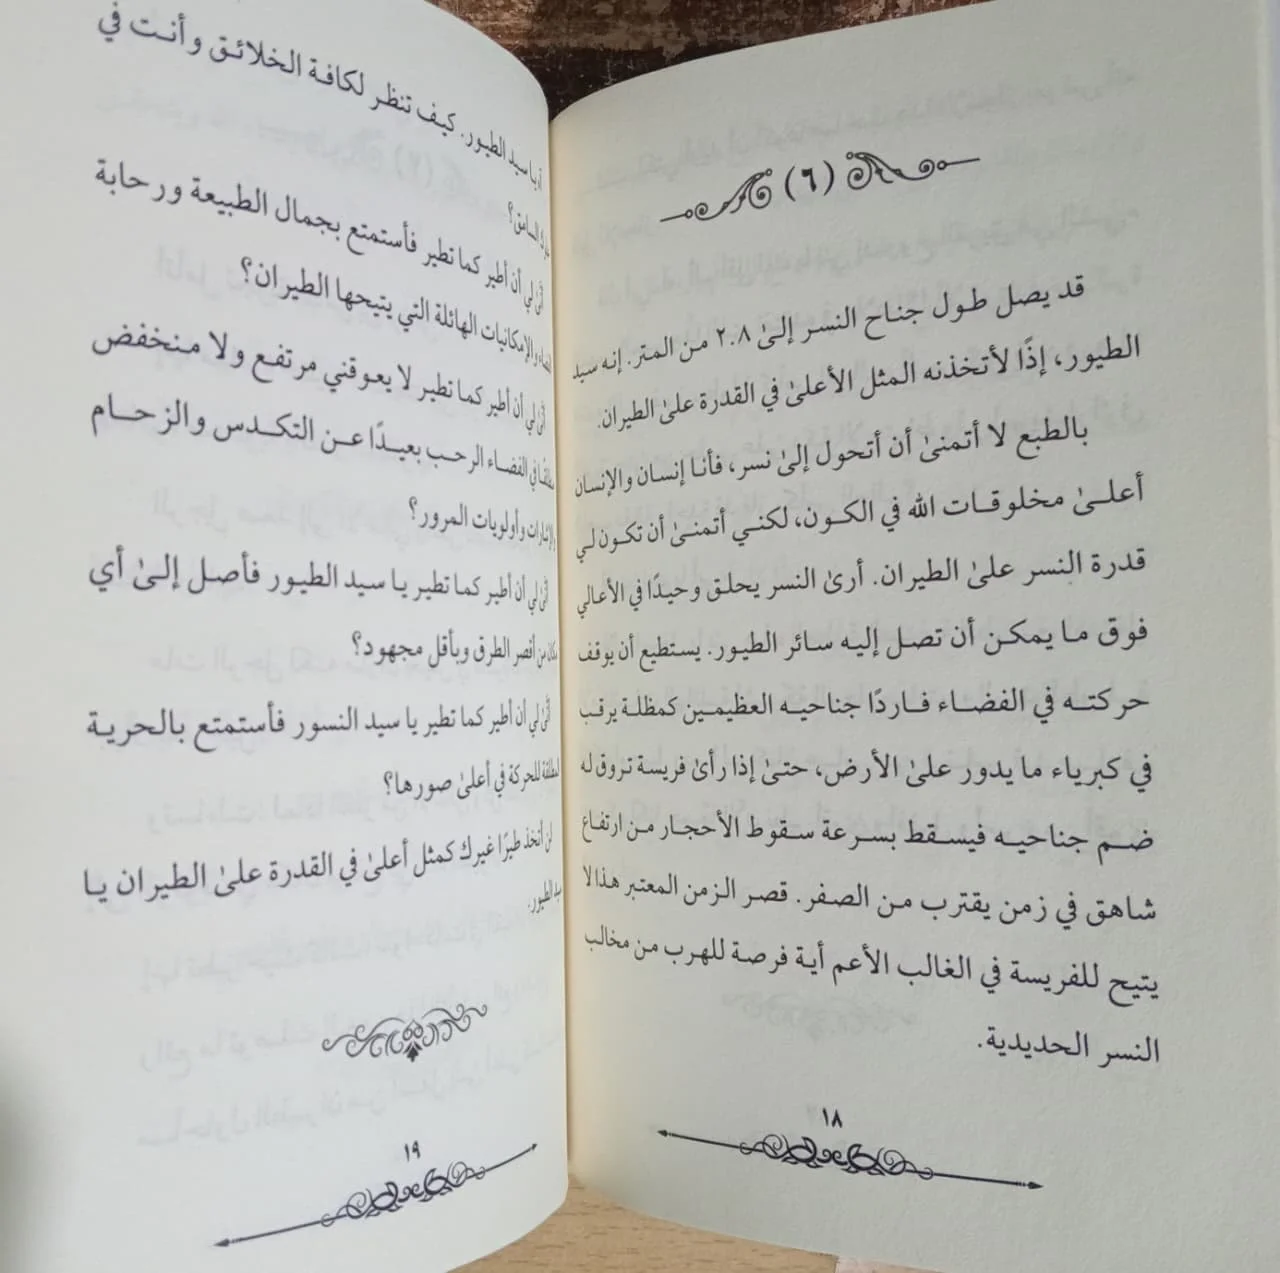 (٦)
قد يصل طول جناح النسر إلىٰ ٢.٨ من المتر. إنه سيد
الطيور، إذًا لأتخذنه المثل الأعلىٰ في القدرة علىٰ الطيران.
بالطبع لا أتمنىٰ أن أتحول إلىٰ نسر، فأنا إنسان والإنسان
أعلىٰ مخلوقات الله في الكون، لكنني أتمنىٰ أن تكون لي
قدرة النسر علىٰ الطيران. أرىٰ النسر يحلق وحيدًا في الأعالي
فوق ما يمكن أن تصل إليه سائر الطيور. يستطيع أن يوقف
حركته في الفضاء فاردًا جناحيه العظيمين كمظلة يرقب
في كبرياء ما يدور علىٰ الأرض، حتىٰ إذا رأىٰ فريسة تروق له
ضم جناحيه فيسقط بسرعة سقوط الأحجار من ارتفاع
شاهق في زمن يقترب من الصفر. قصر الزمن المعتبر هذا لا
يتيح للفريسة في الغالب الأعم أية فرصة للهرب من مخالب
النسر الحديدية.
١٨
آه يا سيد الطيور. كيف تنظر لكافة الخلائق وأنت في
السامق؟
أنَّىٰ لي أن أطير كما تطير فأستمتع بجمال الطبيعة ورحابة
الفضاء والإمكانيات الهائلة التي يتيحها الطيران؟
أنَّىٰ لي أن أطير كما تطير لا يعوقني مرتفع ولا منخفض
في الفضاء الرحب بعيدًا عن التكدس والزحام
والإشارات وأولويات المرور؟
أنَّىٰ لي أن أطير كما تطير يا سيد الطيور فأصل إلىٰ أي
مكان من أقصر الطرق وبأقل مجهود؟
أنَّىٰ لي أن أطير كما تطير يا سيد النسور فأستمتع بالحرية
المطلقة للحركة في أعلىٰ صورها؟
لن أتخذ طيرًا غيرك كمثل أعلىٰ في القدرة علىٰ الطيران يا
سيد الطيور.
١٩